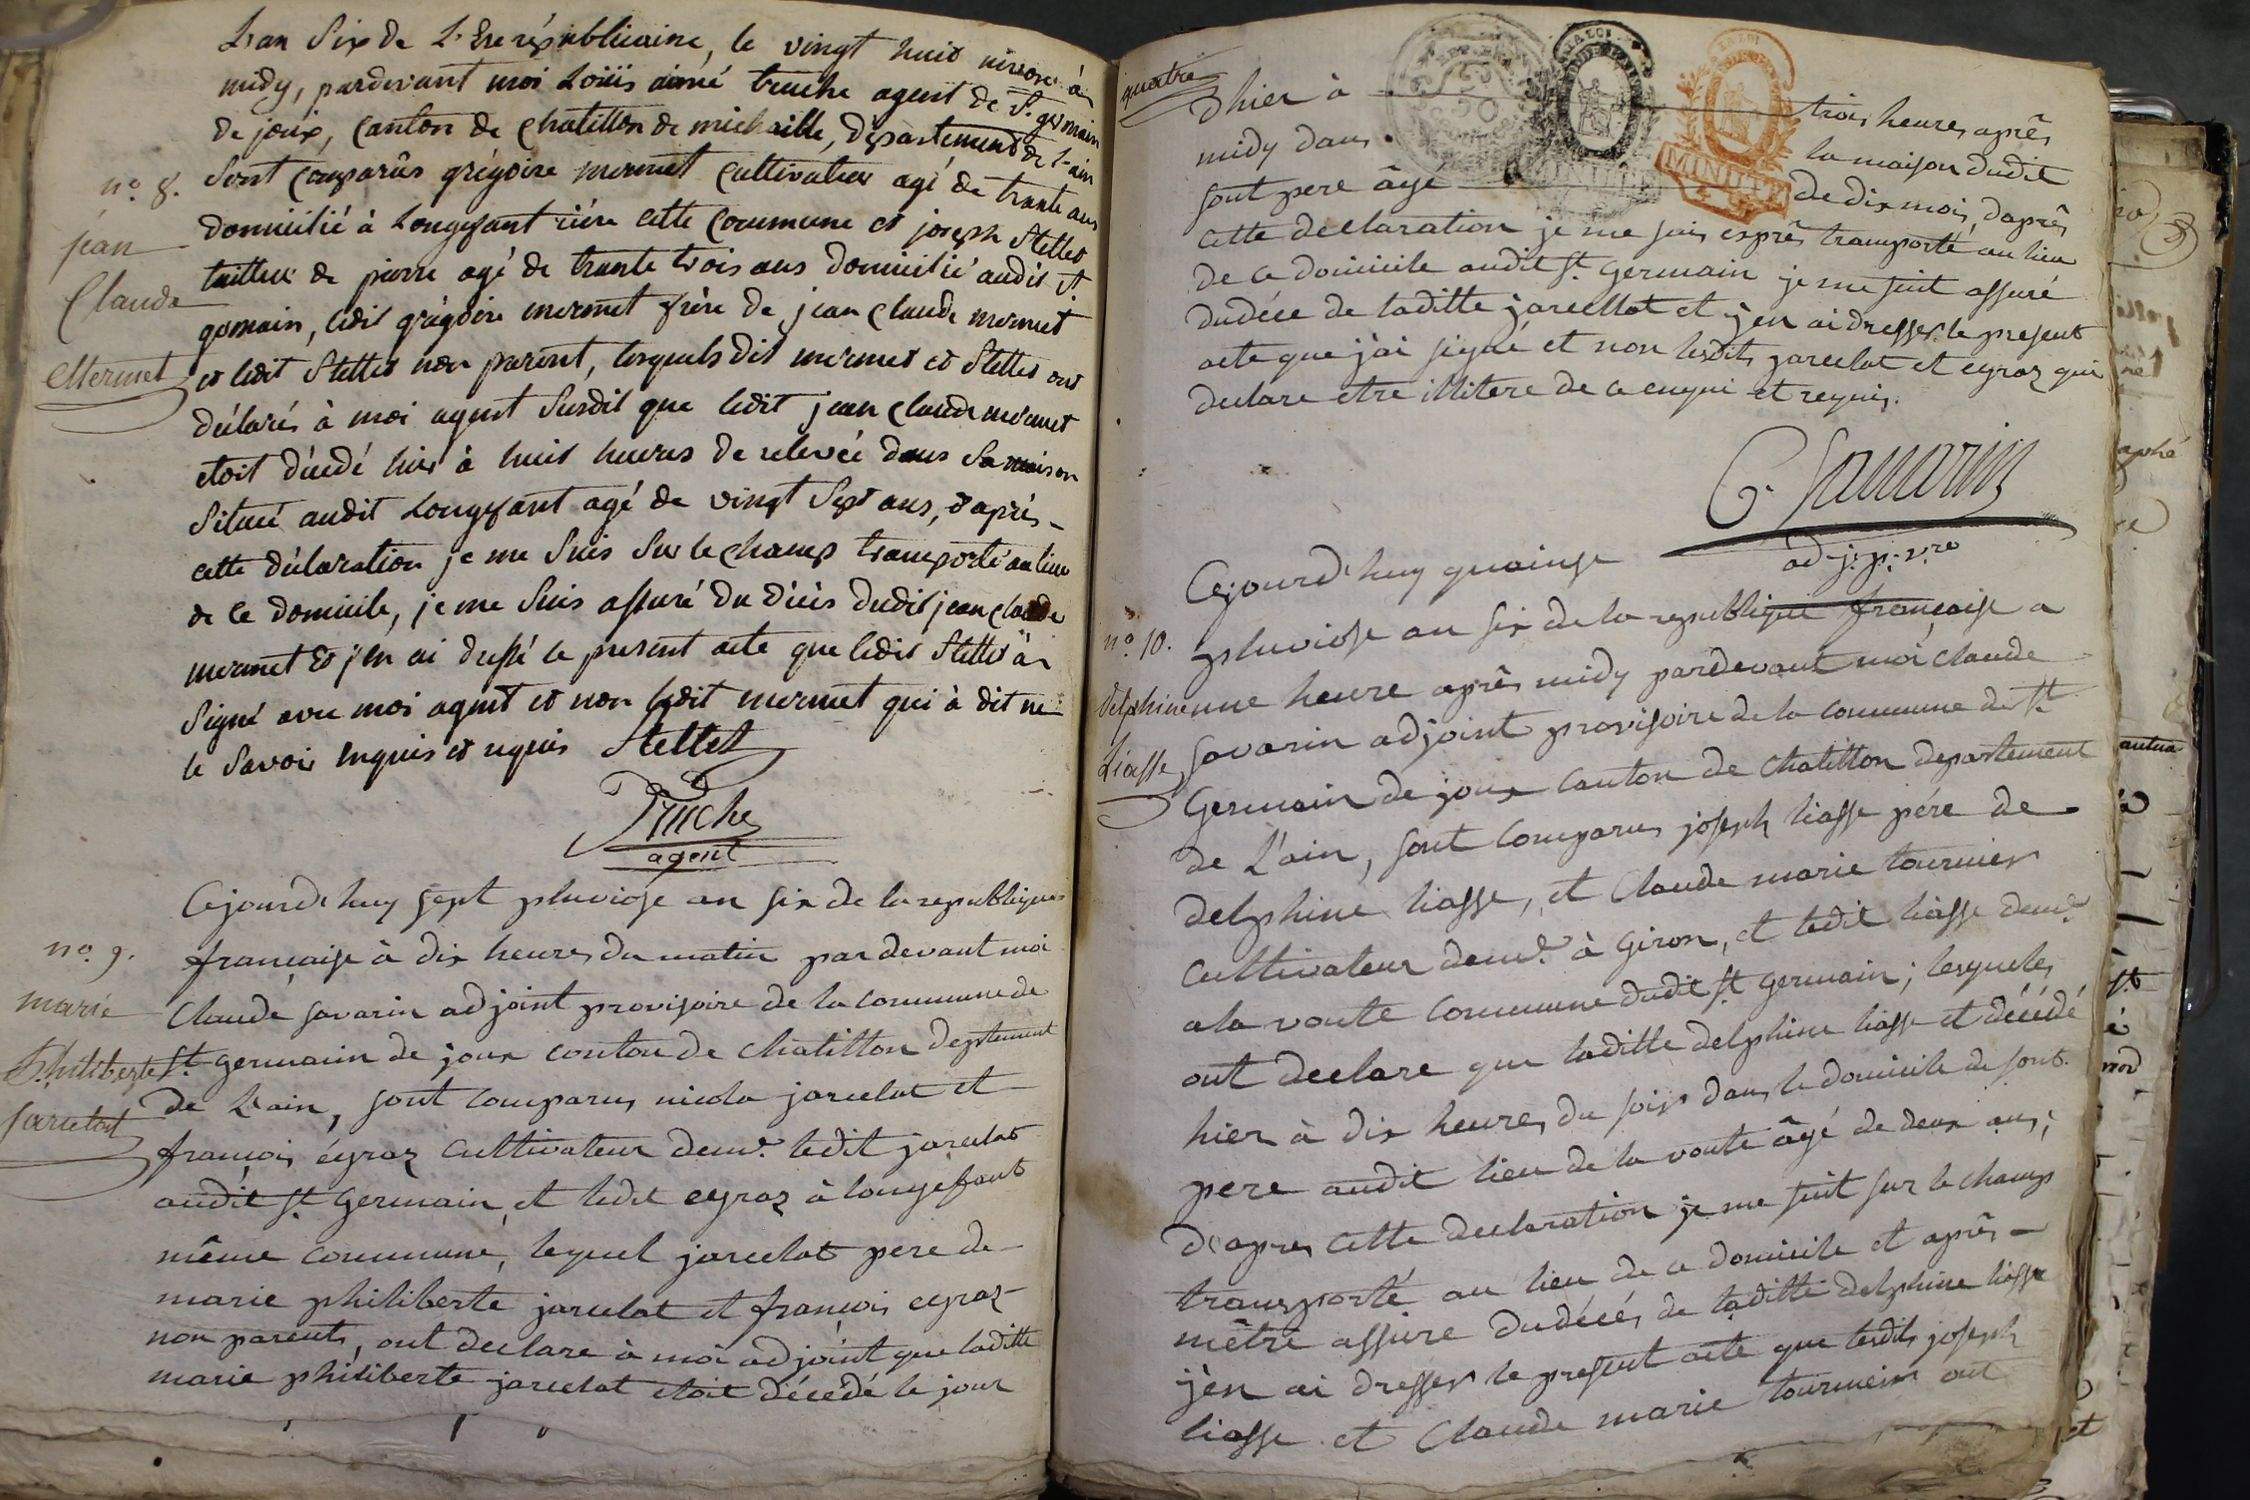 L'an Six de L'Ere républicaine, le vingt huit nivose à
midy, pardevant moi Loüis aimé truche agent de St. germain
de joux, Canton de Chatillon de michaille, département de L'ain
n.o 8.
Sont Comparûs grégoire mermet Cultivateur agé de trente ans
jean
domicilié à Longefant rière cette Commune et joseph Stellet
Claude
tailleur de pierre agé de trente trois ans domicilié audit St.
germain, ledit grégoire mermet frère de jean Claude mermet
Mermet
et ledit Stellet non parent, lesquels dit mermet et Stellet ont
déclarés à moi agent Susdit que ledit jean Claude mermet
etoit décédé hier à huit heures de relevée dans Sa maison
Situé audit Longefant agé de vingt Sept ans, d'après
cette déclaration je me Suis Sur le Champ transporté au lieu
de Ce domicile, je me Suis assuré du décès dudit jean Claude
mermet et j'en ai dressé le present acte que ledit Stellet à
Signé avec moi agent et non ledit mermet qui à dit ne
le Savoir enquis et requis Stellet
Truche
agent
Cejourd'huy sept pluviose an six de la republique
n.o 9.
française à dix heures du matin par devant moi
marie
Claude savarin adjoint provisoire de la commune de
Philiberte
St. germain de joux conton de Chatillon deptement
Jarcelat
de L'ain, sont comparus nicola jarcelat et
françois éyraz Cultivateur demt. ledit jarcelat
audit St. Germain, et ledit eyraz à longefant
même commune, lequel jarcelat pere de
marie philiberte jarcelat et françois eyraz
non parents, ont declare à moi adjoint que laditte
marie philiberte jarcelat etoit décédé le jour
quatre
MINUTE
d'hier à trois heures après
midy dans la maison dudit
sont pere âgé de dix mois, d'après
cette declaration je me suis esprés transporté au lieu
de ce domicile audit St. Germain je me suit assuré
dudéce de laditte jarcellat et j'en ai dresser le present
acte que j'ai signé et non lesdits jarcelat et eyraz qui
declare etre illitere de ce enqui et requis.
C. Savarin
ad. j. p. v.re
Cejourd'huy quainze
n.o 10.
pluviose an six de la republique française a
Delphine
une heure après midy pardevant moi Claude
Liasse
savarin adjoint provisoire de la commune de St.
Germain de joux Canton de Chatillon departement
de L'ain, sont comparus joseph liasse pére de
delphine liasse, et Claude marie tournier
cultivateur demt. à Giron, et ledit liasse demt.
a la voute commune dudit St. germain; lesqueles
ont declare que laditte delphine liasse et décédé
hier à dix heures du soir dans le domicile de sont
pere audit lieu de la voute âgé de deux ans;
d'apres cette declaration je me suit sur le champ
transporté au lieu de ce domicile et après
mêtre assure dudécés de laditte delphine liasse
j'en ai dresser le present acte que lesdits joseph
liasse et Claude marie tournier ont